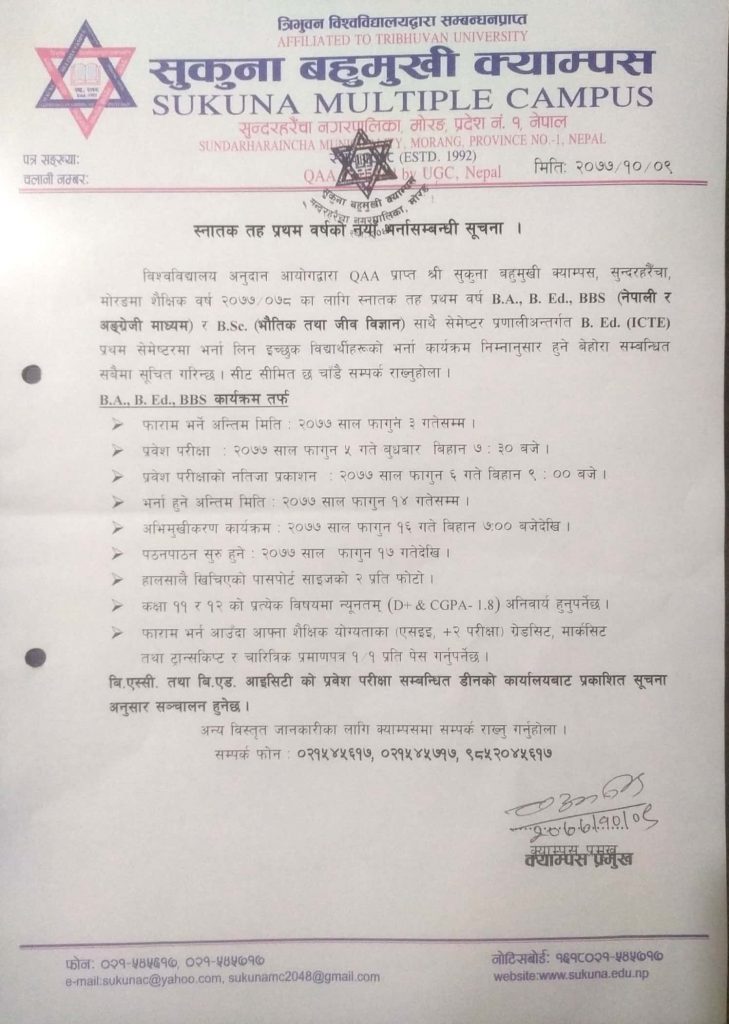 त्रिभुवन विश्वविद्यालयद्वारा सम्बन्धनप्राप्त
AFFILIATED TO TRIBHUVAN UNIVERSITY
सुकुना बहुमुखी क्याम्पस
SUKUNA MULTIPLE CAMPUS
सुन्दरहरैंचा नगरपालिका, मोरङ, प्रदेश नं. १, नेपाल
SUNDARHARAINCHA MUNICIPALITY, MORANG, PROVINCE NO.-1, NEPAL
पत्र सङ्ख्याः
(ESTD. 1992)
मितिः २०७७/१०/०९
चलानी नम्बरः
QAA by UGC, Nepal
सुकुना बहुमुखी क्याम्पस
सुन्दरहरैंचा नगरपालिका, मोरङ
स्नातक तह प्रथम वर्षको नयाँ भर्नासम्बन्धी सूचना ।
विश्वविद्यालय अनुदान आयोगद्वारा QAA प्राप्त श्री सुकुना बहुमुखी क्याम्पस, सुन्दरहरैंचा,
मोरङमा शैक्षिक वर्ष २०७७/०७८ का लागि स्नातक तह प्रथम वर्ष B.A., B. Ed., BBS (नेपाली र
अङ्ग्रेजी माध्यम) र B.Sc. (भौतिक तथा जीव विज्ञान) साथै सेमेष्टर प्रणालीअन्तर्गत B. Ed. (ICTE)
प्रथम सेमेष्टरमा भर्ना लिन इच्छुक विद्यार्थीहरूको भर्ना कार्यक्रम निम्नानुसार हुने बेहोरा सम्बन्धित
सबैमा सूचित गरिन्छ । सीट सीमित छ चाँडै सम्पर्क राख्नुहोला ।
B.A., B. Ed., BBS कार्यक्रम तर्फ
➢ फाराम भर्ने अन्तिम मिति : २०७७ साल फागुन ३ गतेसम्म ।
➢ प्रवेश परीक्षा : २०७७ साल फागुन ५ गते बुधबार बिहान ७ : ३० बजे ।
➢ प्रवेश परीक्षाको नतिजा प्रकाशन : २०७७ साल फागुन ६ गते विहान ९ : ०० बजे ।
➢ भर्ना हुने अन्तिम मिति : २०७७ साल फागुन १४ गतेसम्म ।
➢ अभिमुखीकरण कार्यक्रम : २०७७ साल फागुन १६ गते बिहान ७:०० बजेदेखि ।
➢ पठनपाठन सुरु हुने : २०७७ साल फागुन १७ गतेदेखि ।
➢ हालसालै खिचिएको पासपोर्ट साइजको २ प्रति फोटो ।
➢ कक्षा ११ र १२ को प्रत्येक विषयमा न्यूनतम् (D+ & CGPA- 1.8) अनिवार्य हुनुपर्नेछ ।
➢ फाराम भर्न आउँदा आफ्ना शैक्षिक योग्यताका (एसइइ, +२ परीक्षा) ग्रेडसिट, मार्कसिट
तथा ट्रान्सकिप्ट र चारित्रिक प्रमाणपत्र १/१ प्रति पेस गर्नुपर्नेछ ।
बि.एस्सी. तथा बि.एड. आइसिटी को प्रवेश परीक्षा सम्बन्धित डीनको कार्यालयबाट प्रकाशित सूचना
अनुसार सञ्चालन हुनेछ ।
अन्य विस्तृत जानकारीका लागि क्याम्पसमा सम्पर्क राख्नु गर्नुहोला ।
सम्पर्क फोन : ०२१५४५६१७, ०२१५४५७१७, ९८५२०४५६१७
२०७७/१०/०९
क्याम्पस प्रमुख
क्याम्पस प्रमुख
फोनः ०२१-५४५६१७, ०२१-५४५७१७
नोटिसबोर्डः १६१८०२१-५४५७१७
e-mail:sukunac@yahoo.com, sukunamc2048@gmail.com
website:www.sukuna.edu.np